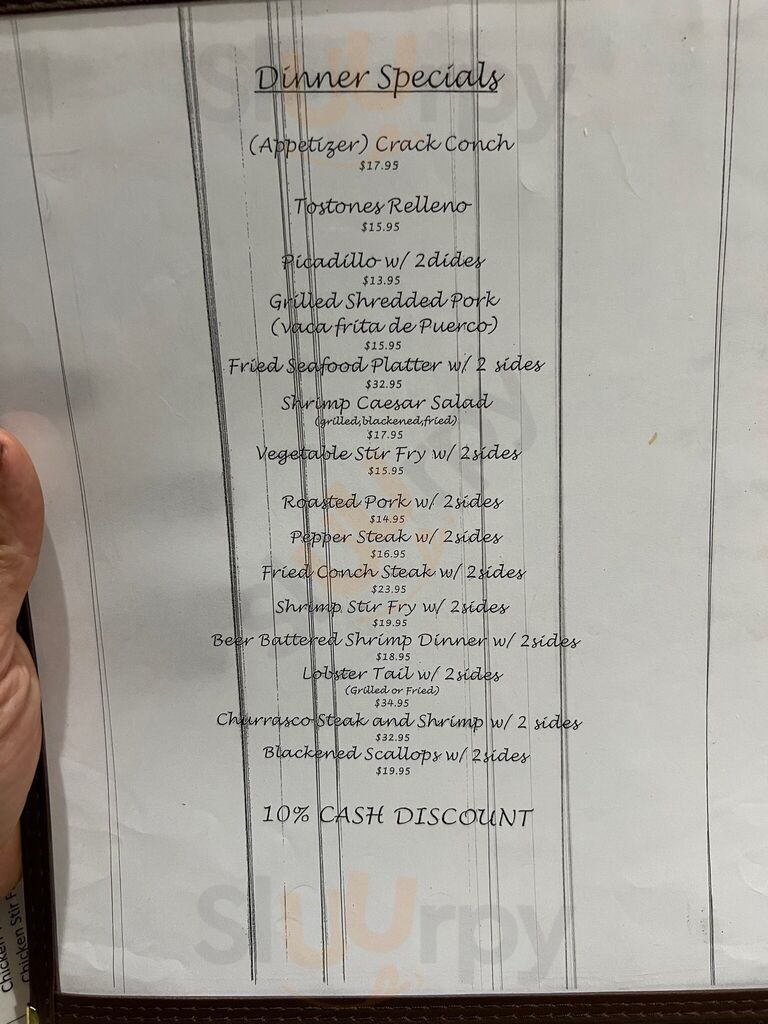 Dinner Specials
(Appetizer) Crack Conch
$17.95
Tostones Relleno
$15.95
Picadillo w/ 2dides
$13.95
Grilled Shredded Pork
(vaca frita de Puerco)
$15.95
Fried Seafood Platter w/ 2 sides
$32.95
Shrimp Caesar Salad
(grilled,blackened,fried)
$17.95
Vegetable Stir Fry w/ 2sides
$15.95
Roasted Pork w/ 2sides
$14.95
Pepper Steak w/ 2sides
$16.95
Fried Conch Steak w/ 2sides
$23.95
Shrimp Stir Fry w/ 2sides
$19.95
Beer Battered Shrimp Dinner w/ 2sides
$18.95
Lobster Tail w/ 2sides
(Grilled or Fried)
$34.95
Churrasco Steak and Shrimp w/ 2 sides
$32.95
Blackened Scallops w/ 2sides
$19.95
10% CASH DISCOUNT
Sluurpy
Sluurpy
Sluurpy
Chicken
Chicken Stir F